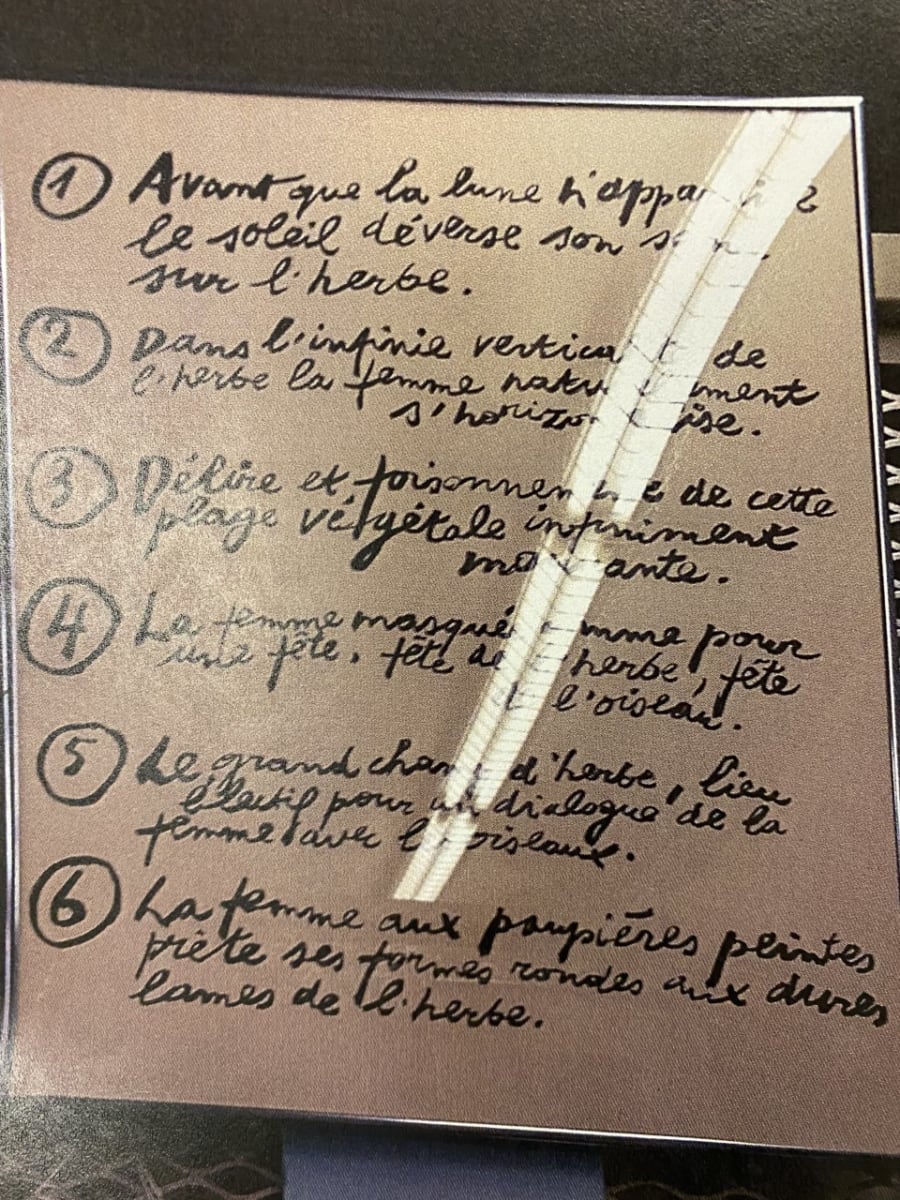 1 Avant que la lune n'apparaisse
le soleil déverse son
sur l'herbe.
2 Dans l'infinie verticalité de
l'herbe la femme naturellement
s'horizontalise.
3 Délire et foisonnement de cette
plage végétale infiniment
mouvante.
4 La femme masquée femme pour
une fête, fête de l'herbe, fête
de l'oiseau.
5 Le grand champ d'herbe, lieu
électif pour un dialogue de la
femme avec les oiseaux.
6 La femme aux paupières peintes
prête ses formes rondes aux dures
lames de l'herbe.